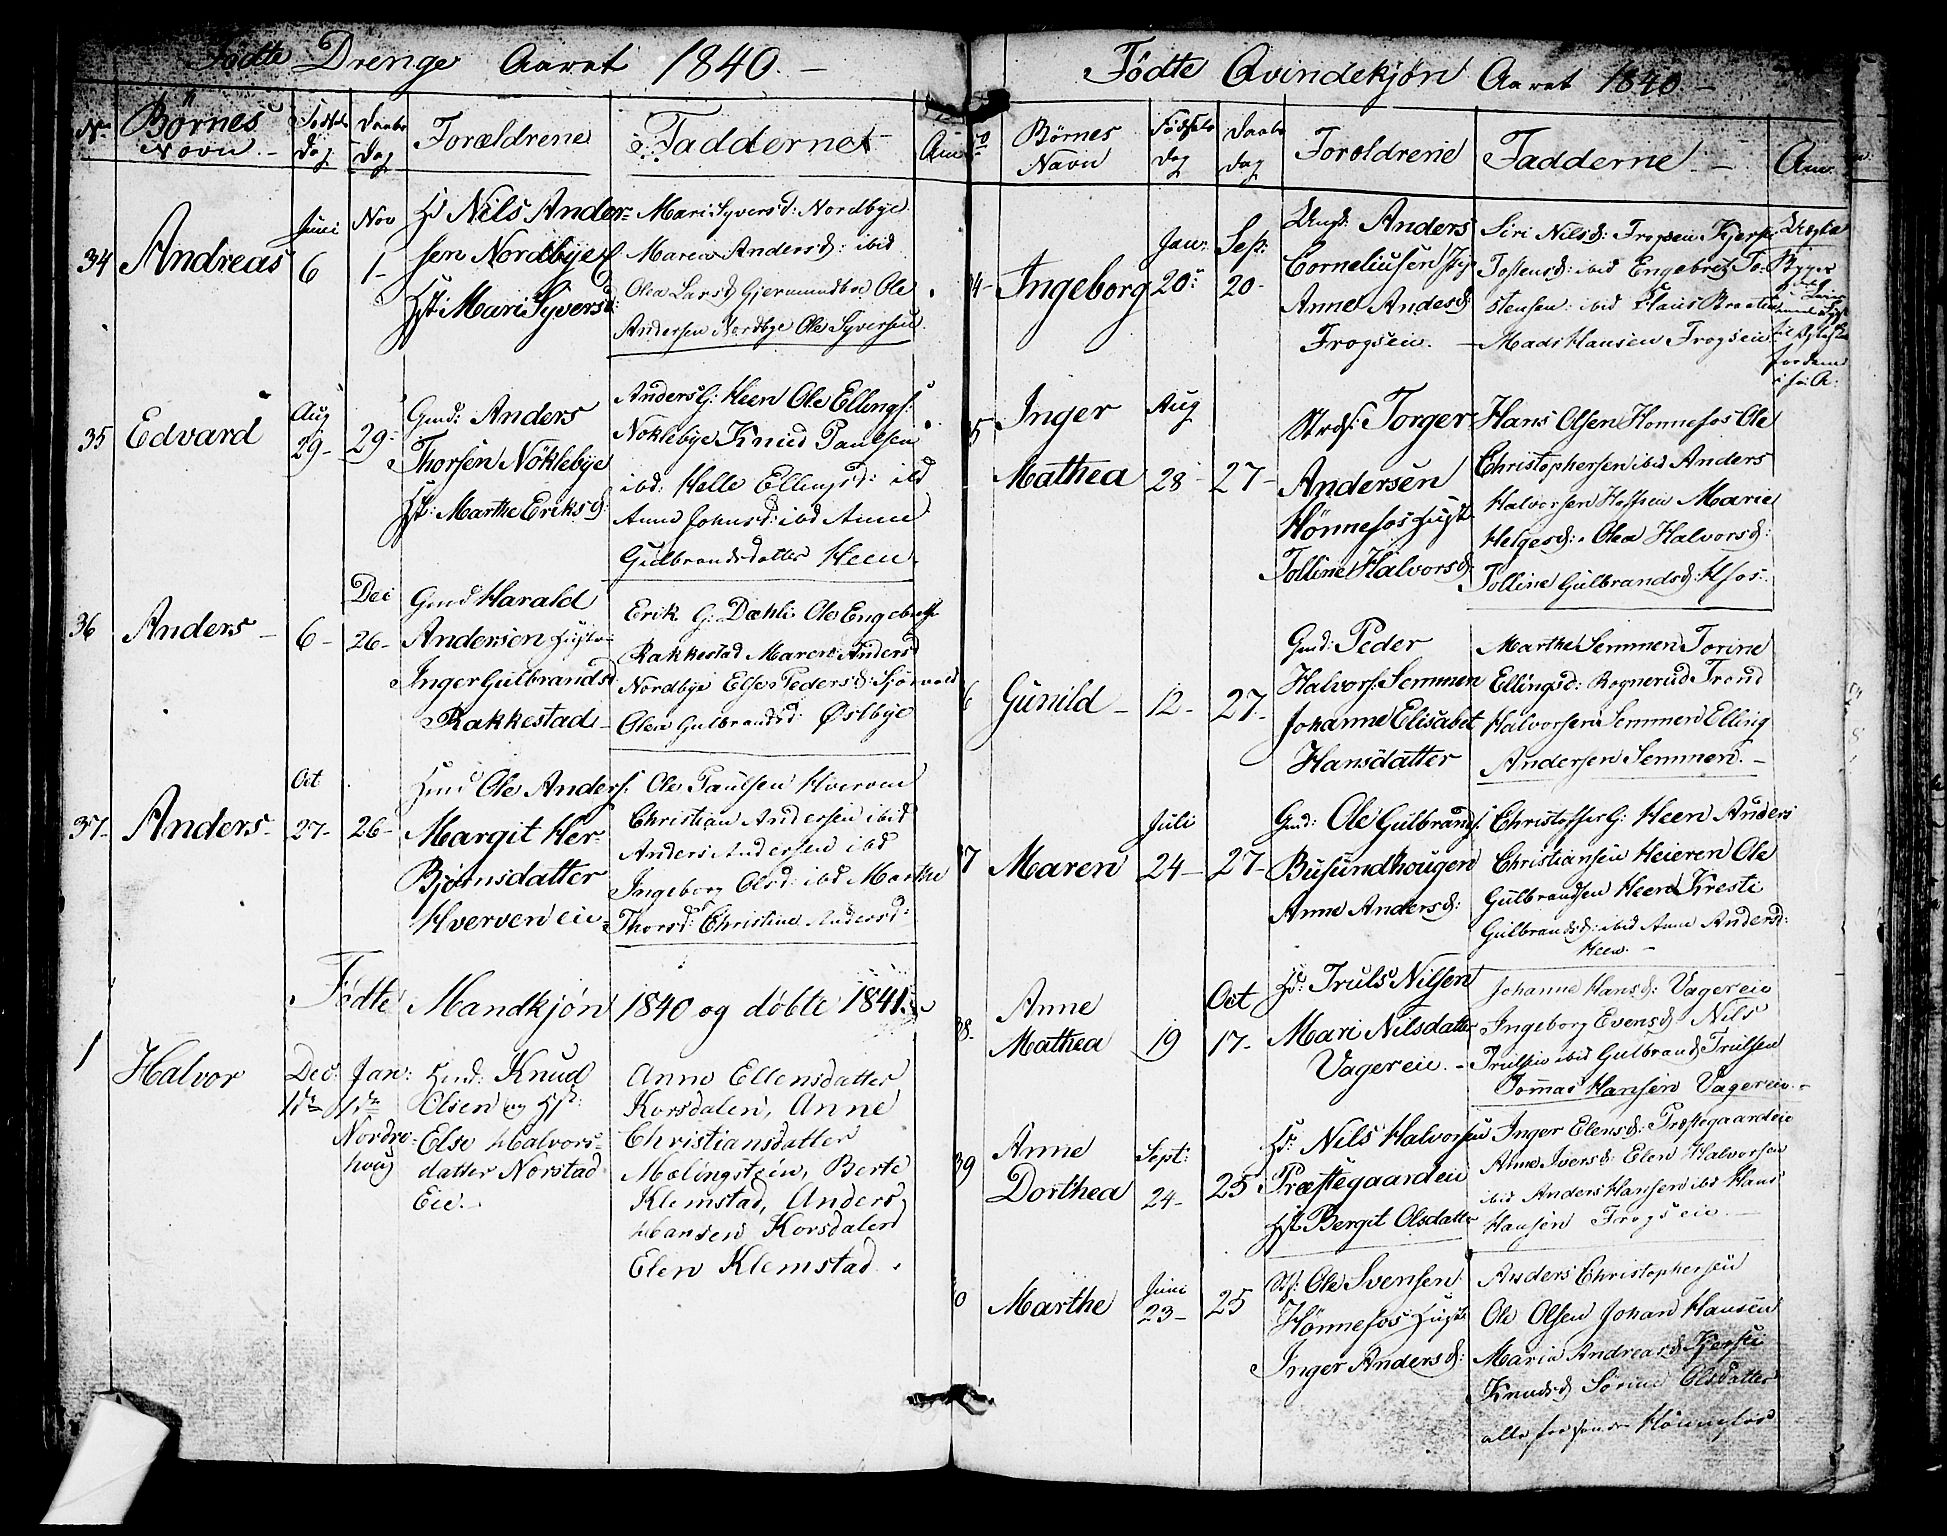 Födte Drenge Aaret 1840. –
No Børnes Navn. – Fødsels Dag Daabs Dag Forældrene Fadderne Anm
34 Andreas Juni 6 Nov 1-
Hd Nils Ander=
sen Nordbye
Hst: Mari Syversd:
Mari Syversd: Nordbye
Maren Andersd: ibid
Olea Larsd Gjermundbo Ole
Andersen Nordbye Ole Syversen.
35 Edvard Aug 29- 29-
Gmd: Anders
Thorsen Nöklebye
Hst: Marthe Eriksd:
Anders G: Heen Ole Ellings:
Nöklebye Knud Paulsen
ibd: Helle Ellingsd: ibd
Anne Johnsd: ibd Anne
Gulbrandsdatter Heen.
36 Anders – 6- Dec 26-
Gmd Harald
Andersen Hust
Inger Gulbrandsd
Rakkestad –
Erik G: Dæhli Ole Engebretss
Rakkestad Maren Andersd
Nordbye Else Pedersd:
Olea Gulbrandsd: Østbye
37- Anders- Oct 27- 26-
Hmd Ole Anders:
Margit Her-
Bjørnsdatter
Hverven eie
Ole Paulsen Hverven
Christian Andersen ibid
Anders Andersen ibd
Ingeborg Olsd: ibd Marthe
Thorsd: Christine Andersd:
Födte Mandkjön 1840 og döbte 1841.
1 Halvor Dec: Jan:
Nordro-
houg
Hmd: Knud
Olsen og Hst:
Else Halvors-
datter Norstad
Eie.
Anne Ellensdatter
Korsdalen, Anne
Christiansdatter
Mælingstein, Berte
Klemstad, Anders
Hansen Korsdalen
Elen Klemstad.
Födte Qvindekjön Aaret 1840. –
Børnes Navn Födsels Dag Daabs Dag Foreldrene Fadderne. – Anm:
4- Ingeborg Jan: 20- Sep: 20-
Ungk: Anders
Corneliusen
Anne Andesd:
Frogseie.
Siri Nilsd: Frogseie Kjersti
Tostensd: ibid Engebret To-
stensen ibid Hans Braaten
Mads Hansen Frogseie
5 Inger
Mathea Aug 28 27-
Strds: Torger
Andersen
Hönnefos Hust
Tolline Halvorsd:
Hans Olsen Hönnefos Ole
Christophersen ibid Anders
Halvorsen Marie
Helgesd: Olea Halvorsd:
Tolline Gulbrandsd: Hfos.
6 Gunild – 12- 27-
Gmd: Peder
Halvors: Semmen
Johanne Elisabet
Hansdatter
Marthe Semmen Torine
Ellingsd: Rognerud Trond
Halvorsen Semmen Elling
Andersen Semmen. –
37 Maren Juli 24- 27-
Gmd: Ole Gulbrands:
Busundhougen
Anne Andersd:
Christoffer G: Heen Anders
Christiansen Heieren Ole
Gulbrandsen Heen Kresti
Gulbrandsd: ibid Anne Andersd:
Heen. –
38. Anne
Mathea 19 Oct 17-
Hd: Truls Nilsen
Mari Nilsdatter
Vagereie. –
Johanne Hansd: Vagereie
Ingeborg Evensd: Nils
Trulsen ibid Gulbrand Trulsen
Tommas Hansen Vagereie. –
39 Anne
Dorthea Sept: 24- 25
Hd: Nils Halvorsen
Præstegaardeie
Hst Bergit Olsdatter
Inger Elensd: Præstegaardeie
Anne Iversd: Elen Halvorsen
ibid Anders Hansen ibd Hans
Hansen Frogseie. –
0 Marthe Juni 23- 25
Ole Svensen
Hönnefos Hust
Inger Andersd:
Anders Christophersen
Ole Olsen Johan Hansen
Maria Andreasd Kjersti
Knudsd Sörine Olsdatter
alle Hönnefos